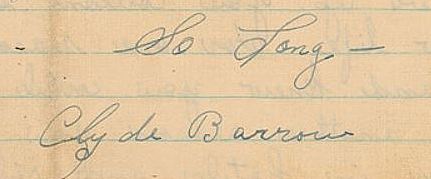 - So Long -
Clyde Barrow